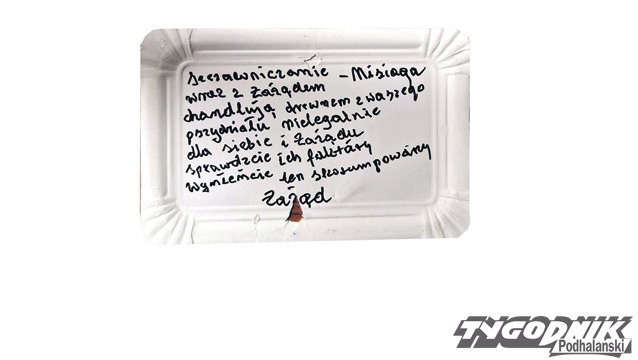 Szczawniczanie – Misiaga
wraz z Zażądem
chandlują drewnem z waszego
przydziału nielegalnie
dla siebie i Zażądu
sprawdzcie ich faktóry
wymieńcie ten skorumpowany
Zażąd
TYGODNIK
Podhalański